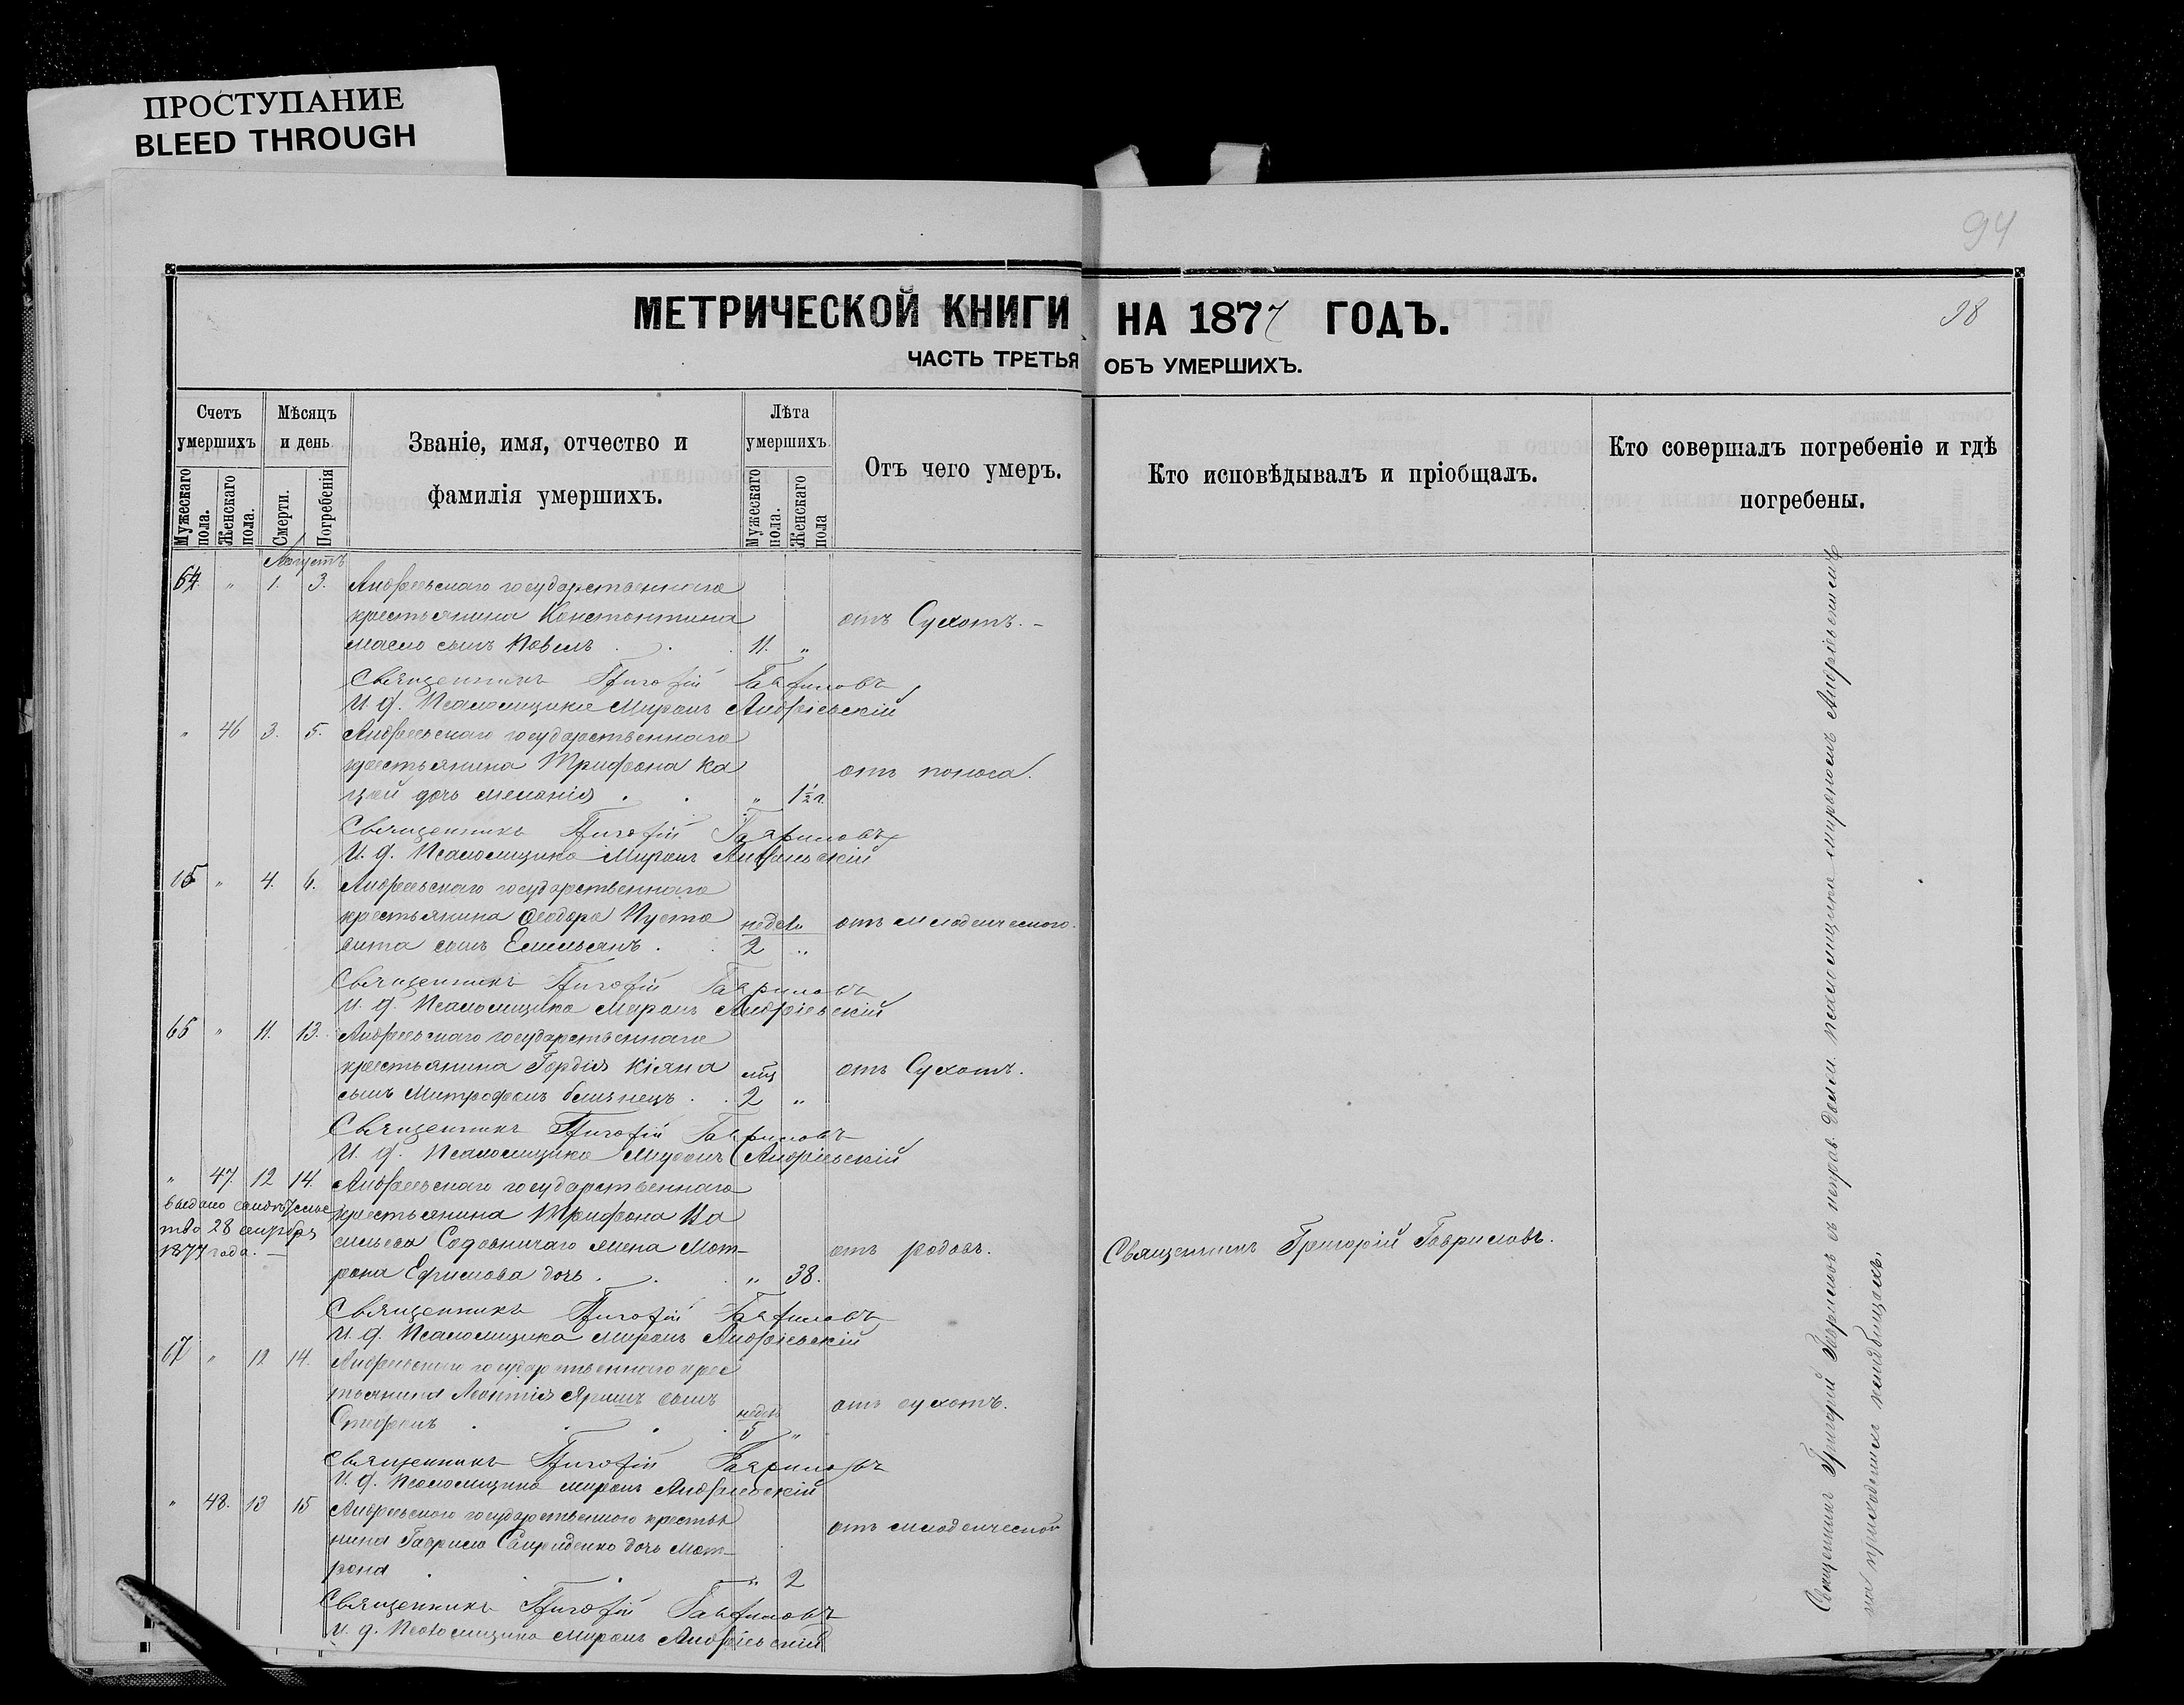 ПРОСТУПАНИЕ
BLEED THROUGH
94
98
МЕТРИЧЕСКОЙ КНИГИ НА 1877 ГОДЪ.
ЧАСТЬ ТРЕТЬЯ ОБЪ УМЕРШИХЪ.
Счетъ умершихъ
Мужескаго пола.
Женскаго пола.
Мѣсяцъ и день
Смерти.
Погребенія
Званіе, имя, отчество и фамилія умершихъ.
Лѣта умершихъ.
Мужескаго пола.
Женскаго пола
Отъ чего умеръ.
Кто исповѣдывалъ и пріобщалъ.
Кто совершалъ погребеніе и гдѣ погребены.
Августъ
64. " 1. 3. Андреевскаго государственнаго
крестьянина Константина отъ Сухотъ. -
сынъ Павелъ . . . 11. "
Священникъ Григорій Гавриловъ
И. д. Псаломщика Миронъ Андріевскій
" 46 3. 5. Андреевскаго государственнаго
крестьянина Трифона Ка отъ поноса.
цай дочь Меланія . . " 1½ г.
Священникъ Григорій Гавриловъ
И. д. Псаломщика Миронъ Андріевскій
65 " 4. 6. Андреевскаго государственнаго
крестьянина Ѳеодора Пусто недел. отъ младенческаго.
вита сынъ Емельянъ . . 2 "
Священникъ Григорій Гавриловъ
И. д. Псаломщика Миронъ Андріевскій
66 " 11. 13. Андреевскаго государственнаго
крестьянина Гордія Кіяна мц отъ Сухотъ.
сынъ Митрофанъ близнецъ . . 2 "
Священникъ Григорій Гавриловъ
И. д. Псаломщика Миронъ Андріевскій
" 47. 12 14. Андреевскаго государственнаго
крестьянина Трифона Ва
сильева Содовничаго жена Мот- отъ родовъ. Священникъ Григорій Гавриловъ.
рона Ефимова дочь . . . " 38.
выдано
тво 28 сентября
1877 года. —
Священникъ Григорій Гавриловъ
И. д. Псаломщика Миронъ Андріевскій
67 " 12 14. Андреевскаго государственнаго крес
тьянина Леонтія Яришъ сынъ недел отъ сухотъ.
Стефанъ . . . . 5 "
Священникъ Григорій Гавриловъ
И. д. Псаломщика Миронъ Андріевскій
" 48. 13 15 Андреевскаго государственнаго крестья
нина Гаврила Свириденко дочь Мот- отъ младенческой
рона . . " 2
Священникъ Григорій Гавриловъ
И. д. Псаломщика Миронъ Андріевскій
Священникъ Григорій Гавриловъ съ исправ. долж. псаломщика Мирономъ Андріевскимъ
на приходскомъ кладбищахъ.